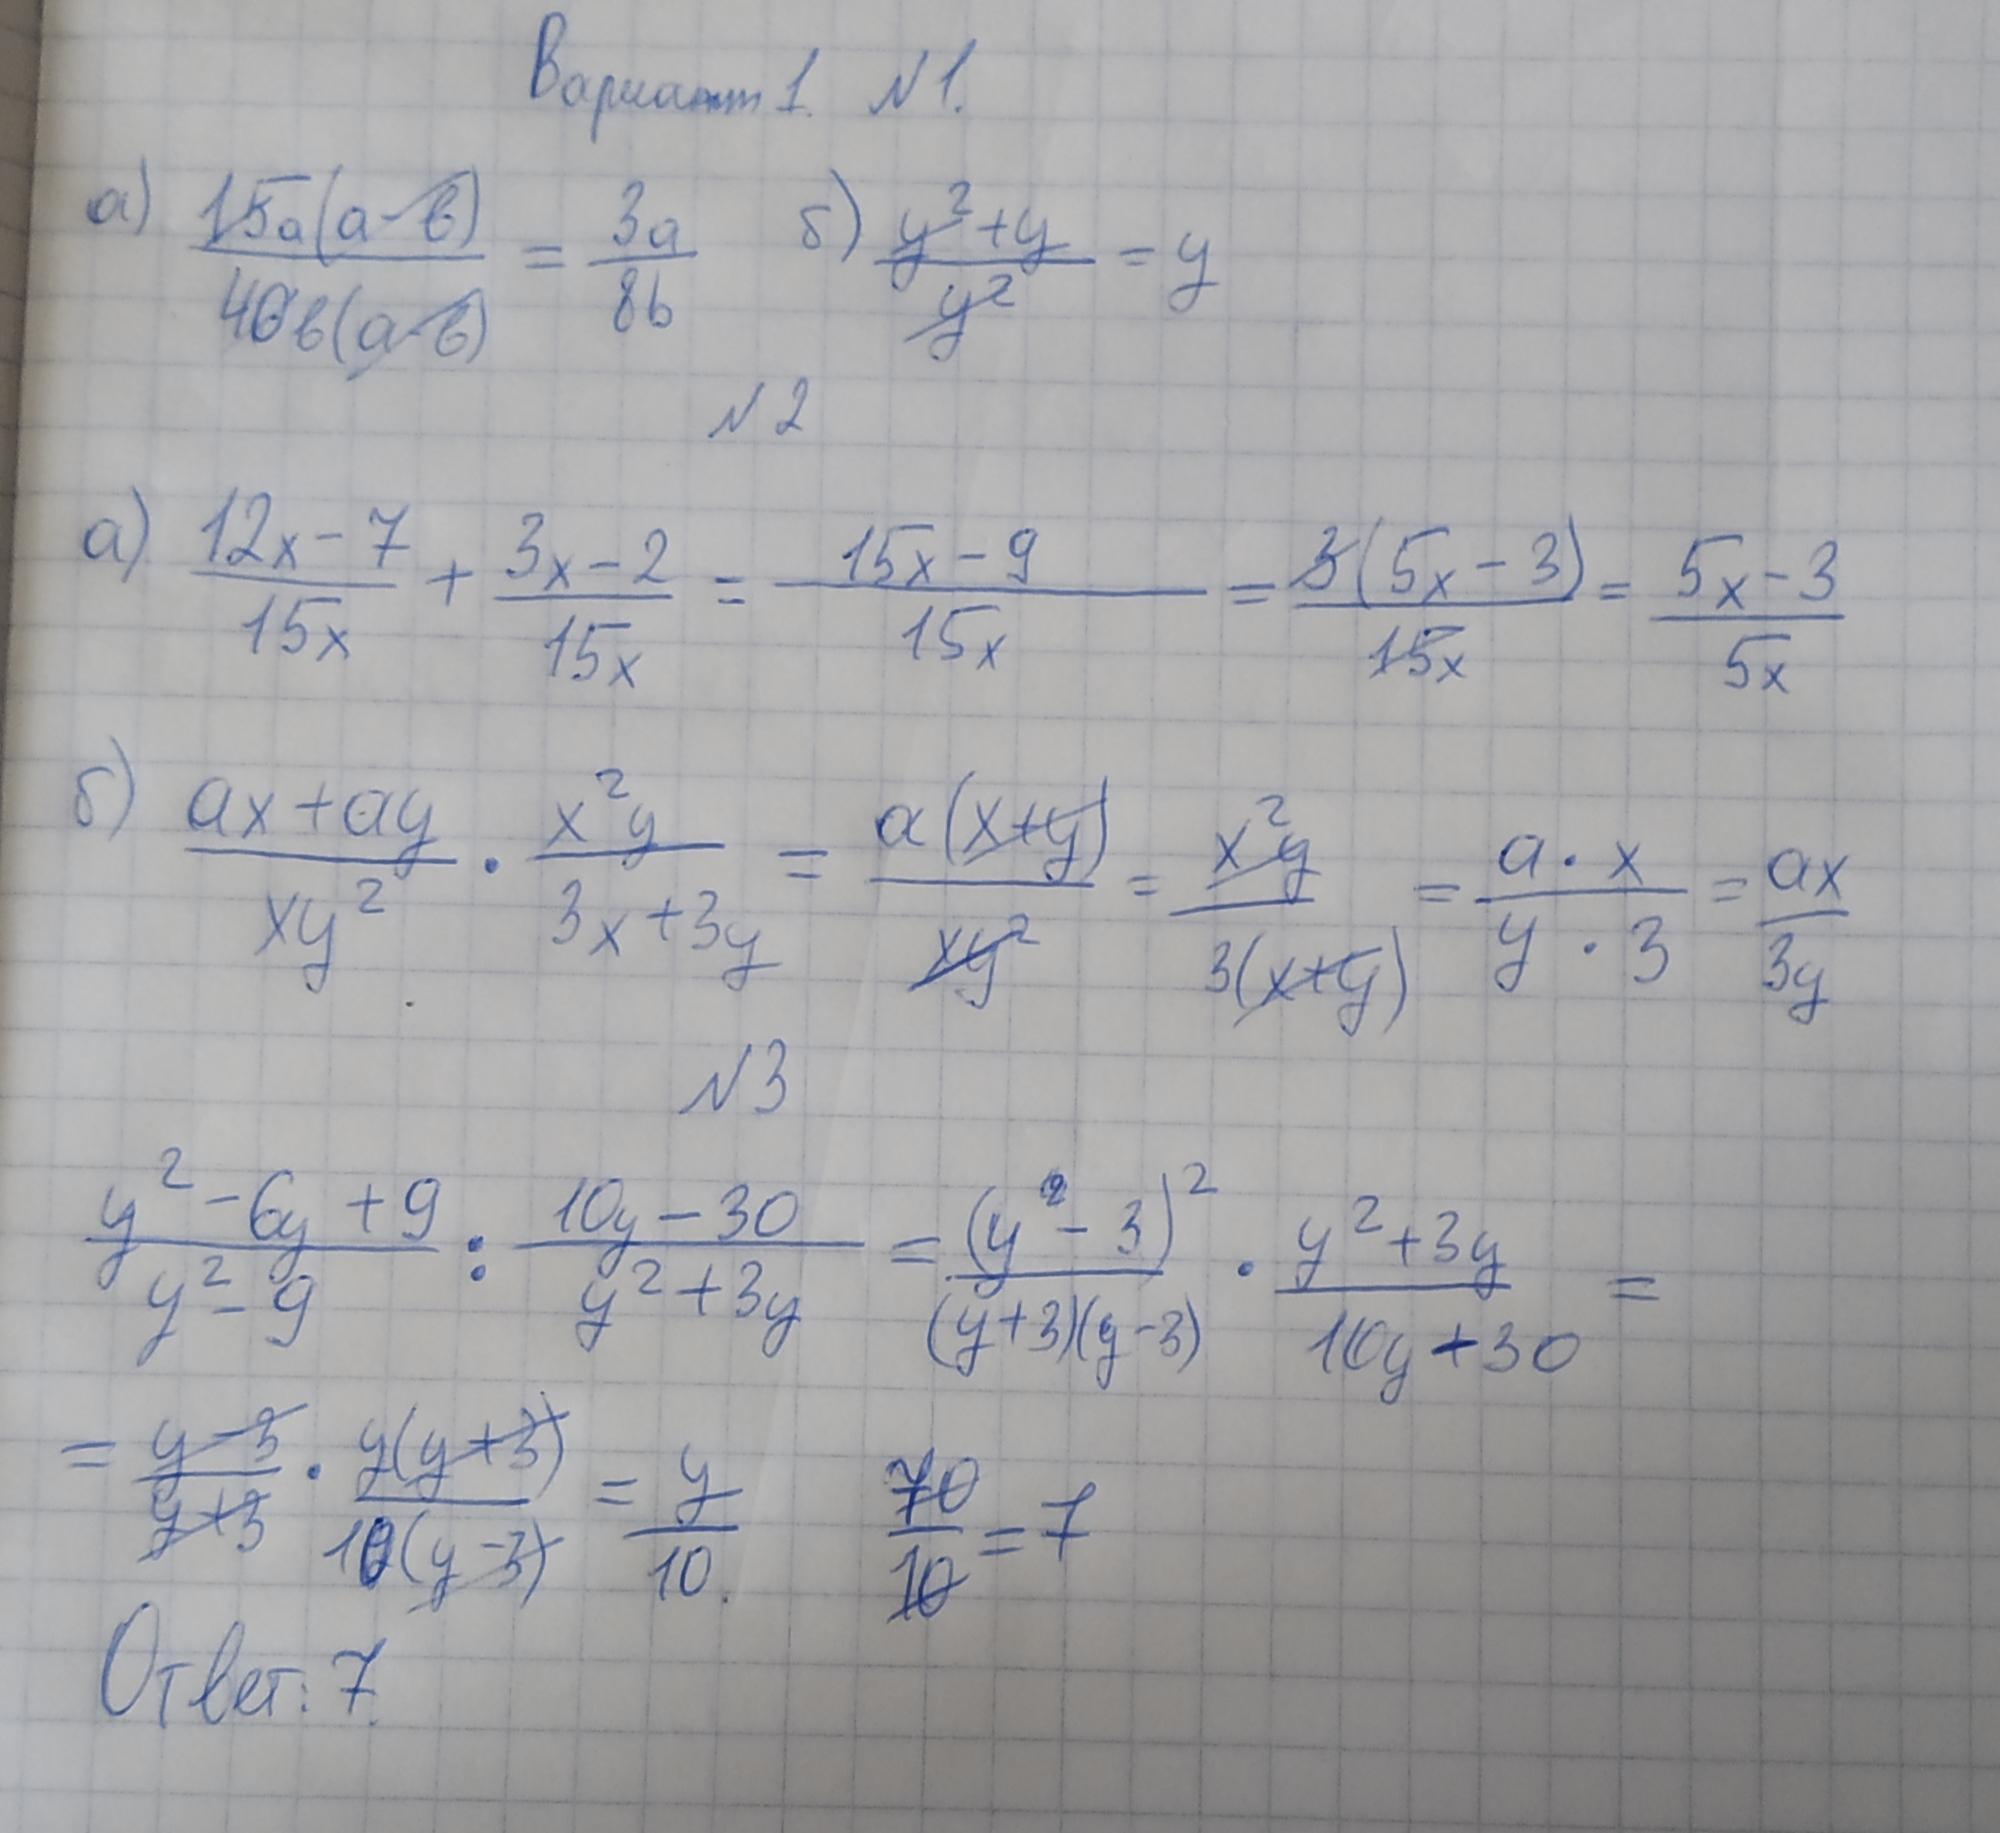 Вариант 1. №1.
а) 15a(a-b)/40b(a-b) = 3a/8b б) y²+y/y² = y
№2
а) 12x-7/15x + 3x-2/15x = 15x-9/15x = 3(5x-3)/15x = 5x-3/5x
б) ax+ay/xy² · x²y/3x+3y = a(x+y)/xy² = x²y/3(x+y) = a·x/y·3 = ax/3y
№3
y²-6y+9/y²-9 : 10y-30/y²+3y = (y²-3)²/(y+3)(y-3) · y²+3y/10y-30 =
= y-3/y+3 · y(y+3)/10(y-3) = y/10. 70/10 = 7
Ответ: 7.